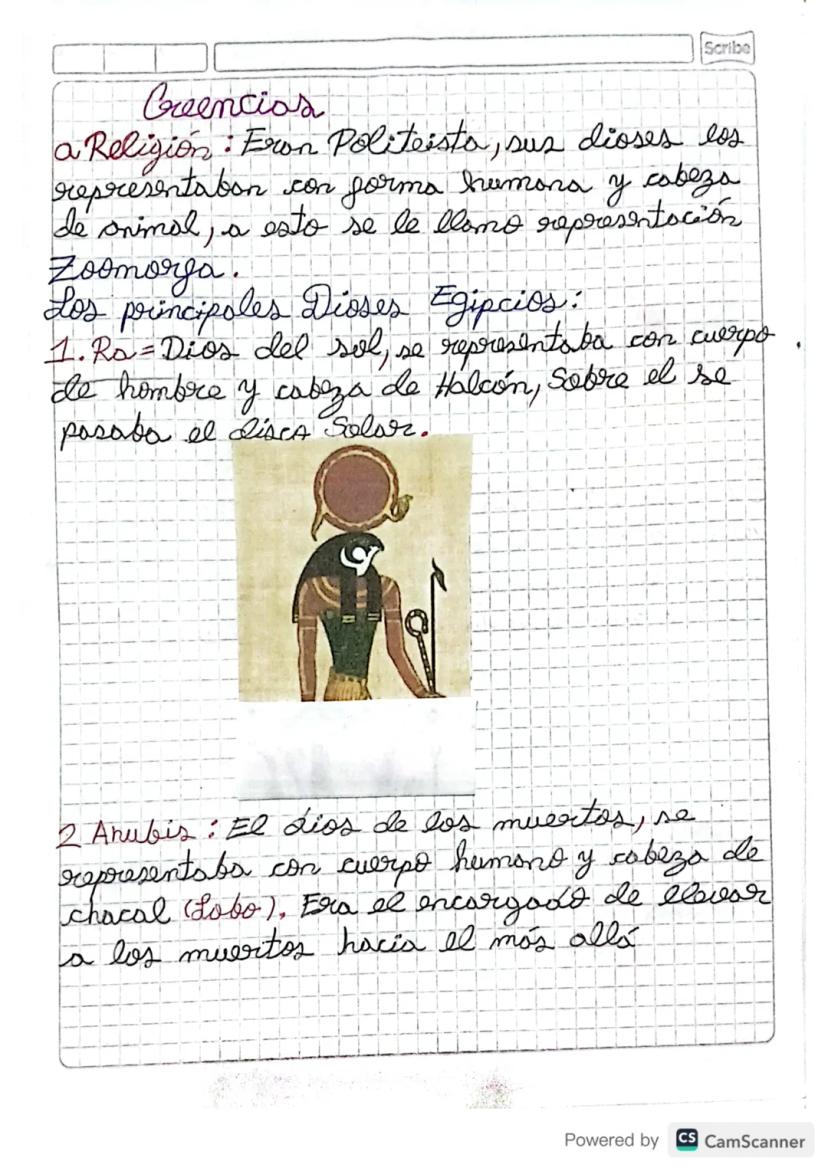 Scribe
Creencias
a Religión: Eran Politeista, sus dioses los
representaban con forma humana y cabeza
de animal, a esto se le llamo representación
Zoomorga.
Los principales Dioses Egipcios:
1. Ra = Dios del sol, se representaba con cuerpo
de hombre y cabeza de Halcón, Sobre el se
pasaba el disca Solar.
2 Anubis: El dios de los muertos, se
representaba con cuerpo humano y cabeza de
chacal (Lobo). Era el encargado de llevar
a los muertos hacia el más allá
Powered by CS CamScanner